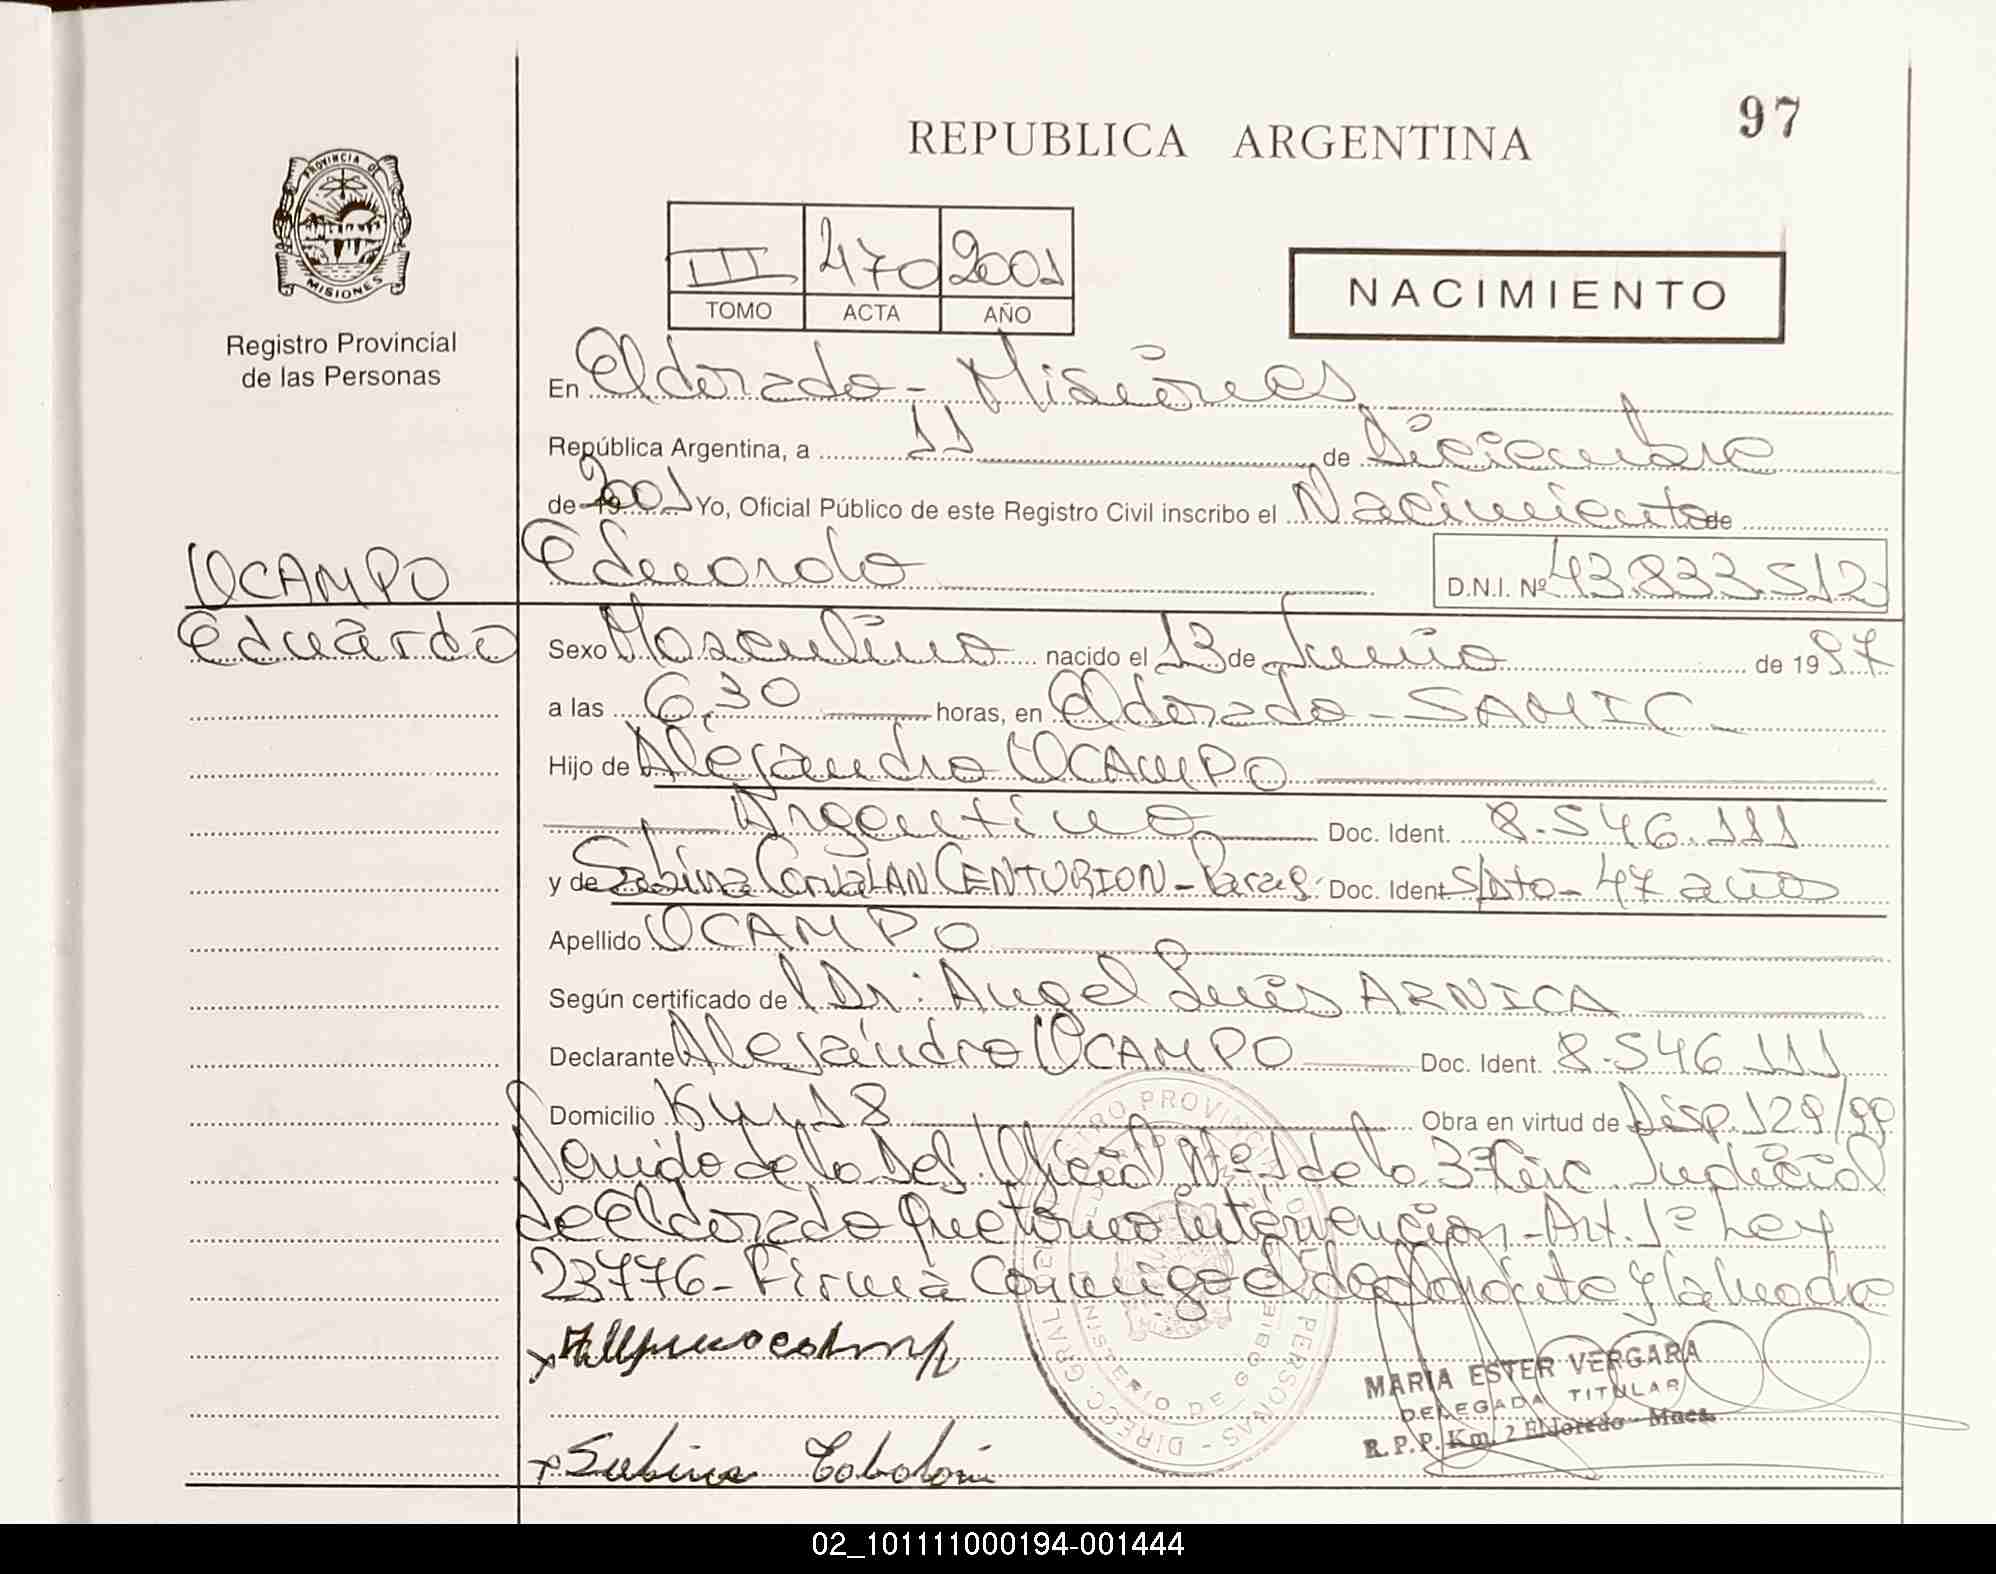 97
REPUBLICA ARGENTINA
PROVINCIA DE
MISIONES
Registro Provincial
de las Personas
III 470 2001
TOMO ACTA AÑO
NACIMIENTO
En Eldorado - Misiones
República Argentina, a 11 de Diciembre
de 19 2001 Yo, Oficial Público de este Registro Civil inscribo el Nacimiento de
OCAMPO
Eduardo
Eduardo D.N.I. Nº 43.833.512
Sexo Masculino nacido el 13 de Junio de 1997
a las 6,30 horas, en Eldorado - SAMIC -
Hijo de Alejandro OCAMPO
Argentino Doc. Ident. 8.546.111
y de Sabina CorvaLAN CENTURION - Parag. Doc. Ident. S/Dto - 47 años
Apellido OCAMPO
Según certificado del Dr: Angel Luis ARNICA
Declarante Alejandro OCAMPO Doc. Ident. 8.546.111
Domicilio Km 18 Obra en virtud de Disp. 129/99
Venido de la Def. Oficial Nº 1 de la 3ª Circ. Judicial
de Eldorado que tomó intervención - Art. 1º Ley
23776 - Firma Conmigo el declarante y la madre
x
x Sabina
MARIA ESTER VERGARA
DELEGADA TITULAR
R.P.P. Km. 2 Eldorado - Mnes.
DIREC. GRAL. REGISTRO PROVINCIAL DE LAS PERSONAS
MINISTERIO DE GOBIERNO
02_101111000194-001444